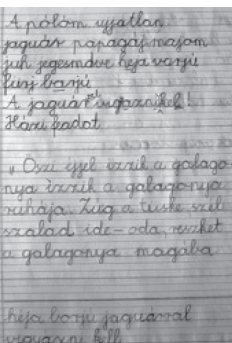 A pólóm ujjatlan
jaguár papagáj majom
juh jegesmedve héja varjú
fürj borjú
A jaguárral vigyázni kell!
Házi feladat
„Őszi éjjel izzik a galago-
nya izzik a galagonya
ruhája. Zúg a tüske szél
szalad ide-oda, reszket
a galagonya magába.
héja borjú jaguárral
vigyázni kell